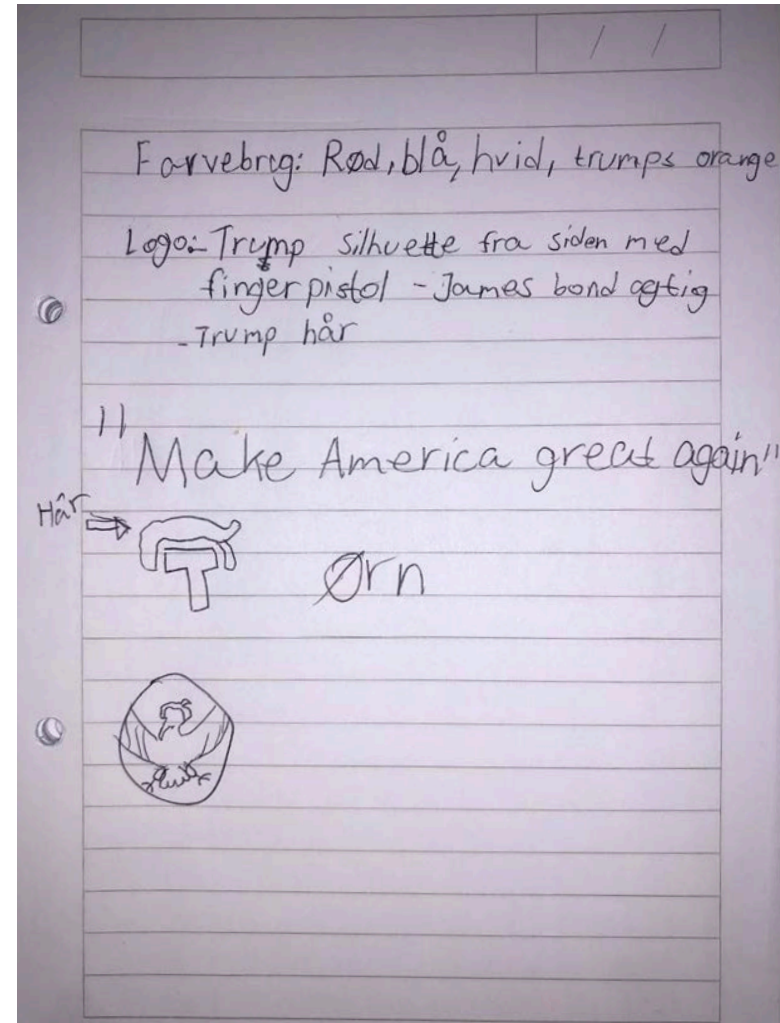 / /
Farvebrug: Rød, blå, hvid, trumps orange
Logo:- Trump silhuette fra siden med
fingerpistol - James bond agtig
- Trump hår
"Make America great again"
Hår
T
Ørn